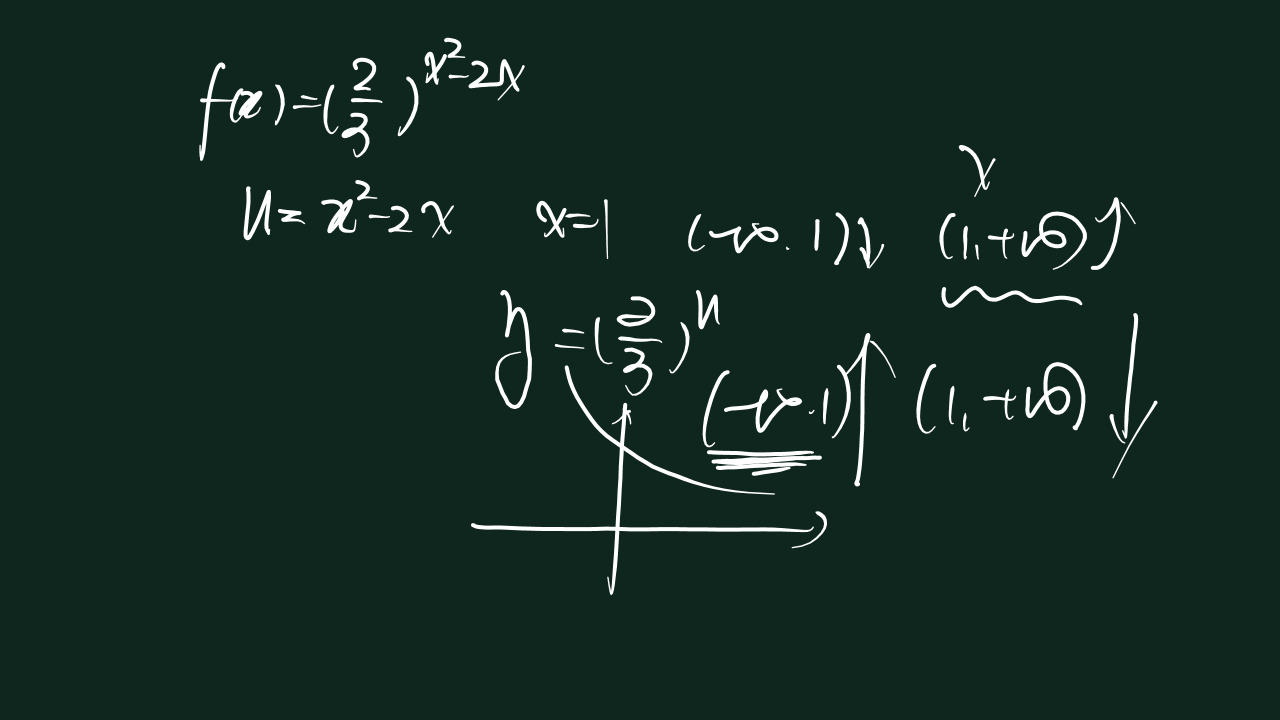 f(x)=(2/3)^(x²-2x)
x
u=x²-2x x=1 (-∞.1)↓ (1,+∞)↑
y=(2/3)^u
(-∞.1)↑ (1,+∞)↓